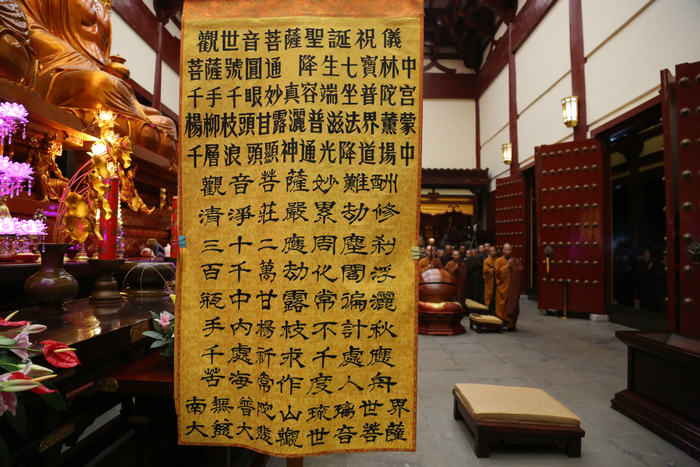 觀世音菩薩聖誕祝儀
菩薩號圓通降生七寶林中
千手千眼妙真容端坐普陀宮
楊柳枝頭甘露灑普滋法界薰蒙
千層浪頭顯神通光降道場中
觀音菩薩妙難酬
清淨莊嚴累劫修
三十二應周塵剎
百千萬劫化閻浮
瓶中甘露常徧灑
手內楊枝不計秋
千處祈求千處應
苦海常作度人舟
南無普陀山琉璃世界
大慈大悲觀世音菩薩